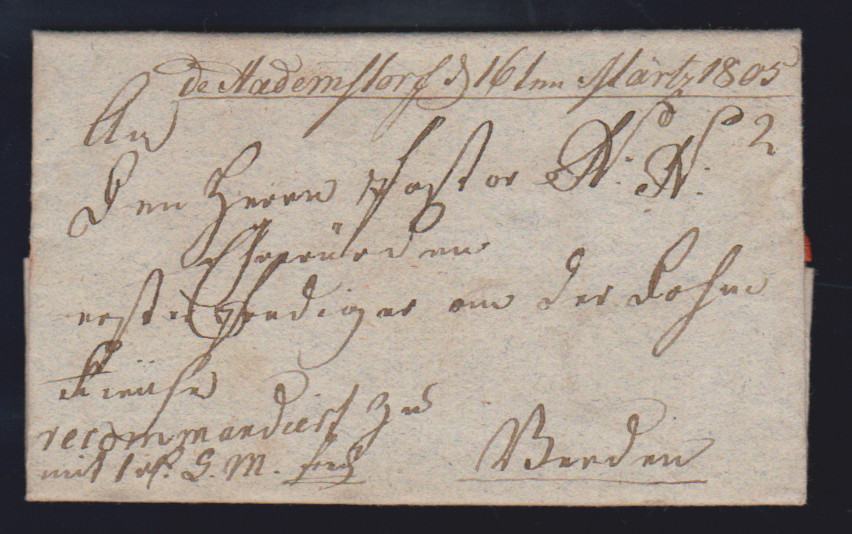 de Hademstorf d 16ten Märtz 1805
An
den Herrn Pastor N: N: 2
Ehrwürden
erster Prediger an der Dohm
Kirche
recommandiert zu
mit 1 rf. C. M.
Verden